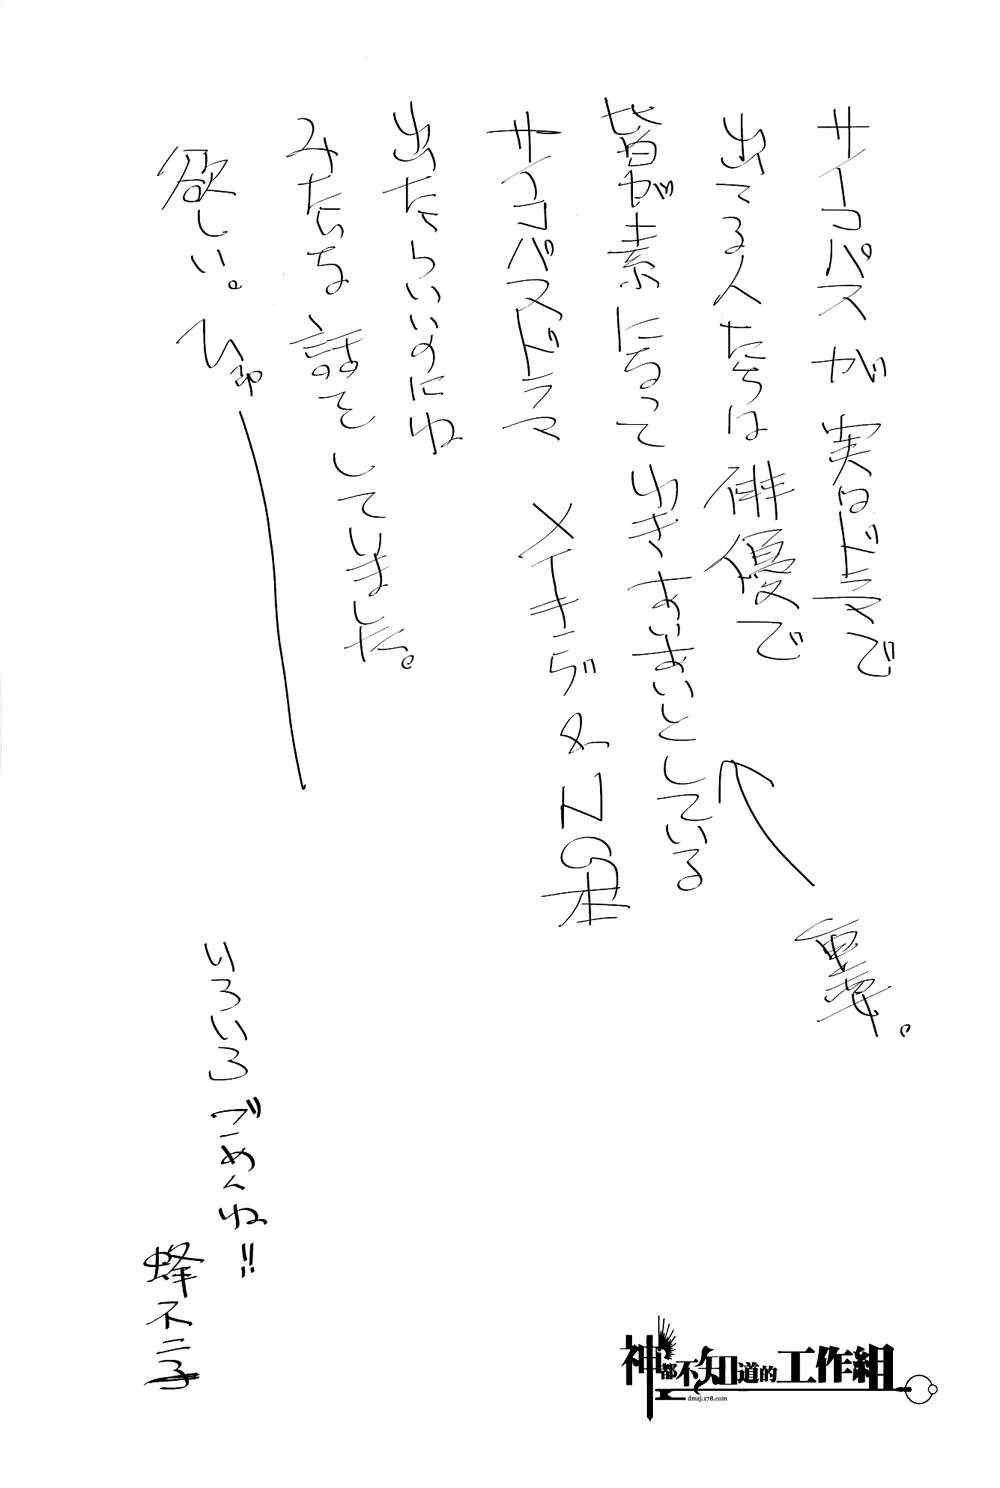 サイコパスが実はドラマで
出てる人たちは俳優で
皆が素になってゆきあいあいとしている
サイコパスドラマ メイキング&NG本
出たらいいのにね
みたいな話をしていました。
欲しい。ひゅー
重要。
いろいろごめんね!!
蜂不二子
神都不知道的工作組
dmzj.178.com